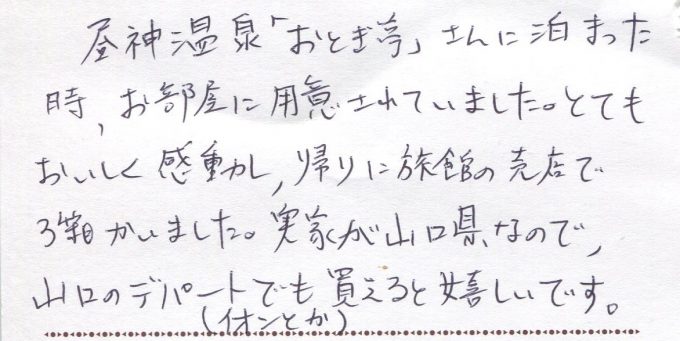 昼神温泉「おとぎ亭」さんに泊まった
時,お部屋に用意されていました。とても
おいしく感動し,帰りに旅館の売店で
3箱かいました。実家が山口県なので,
山口のデパートでも買えると嬉しいです。
(イオンとか)